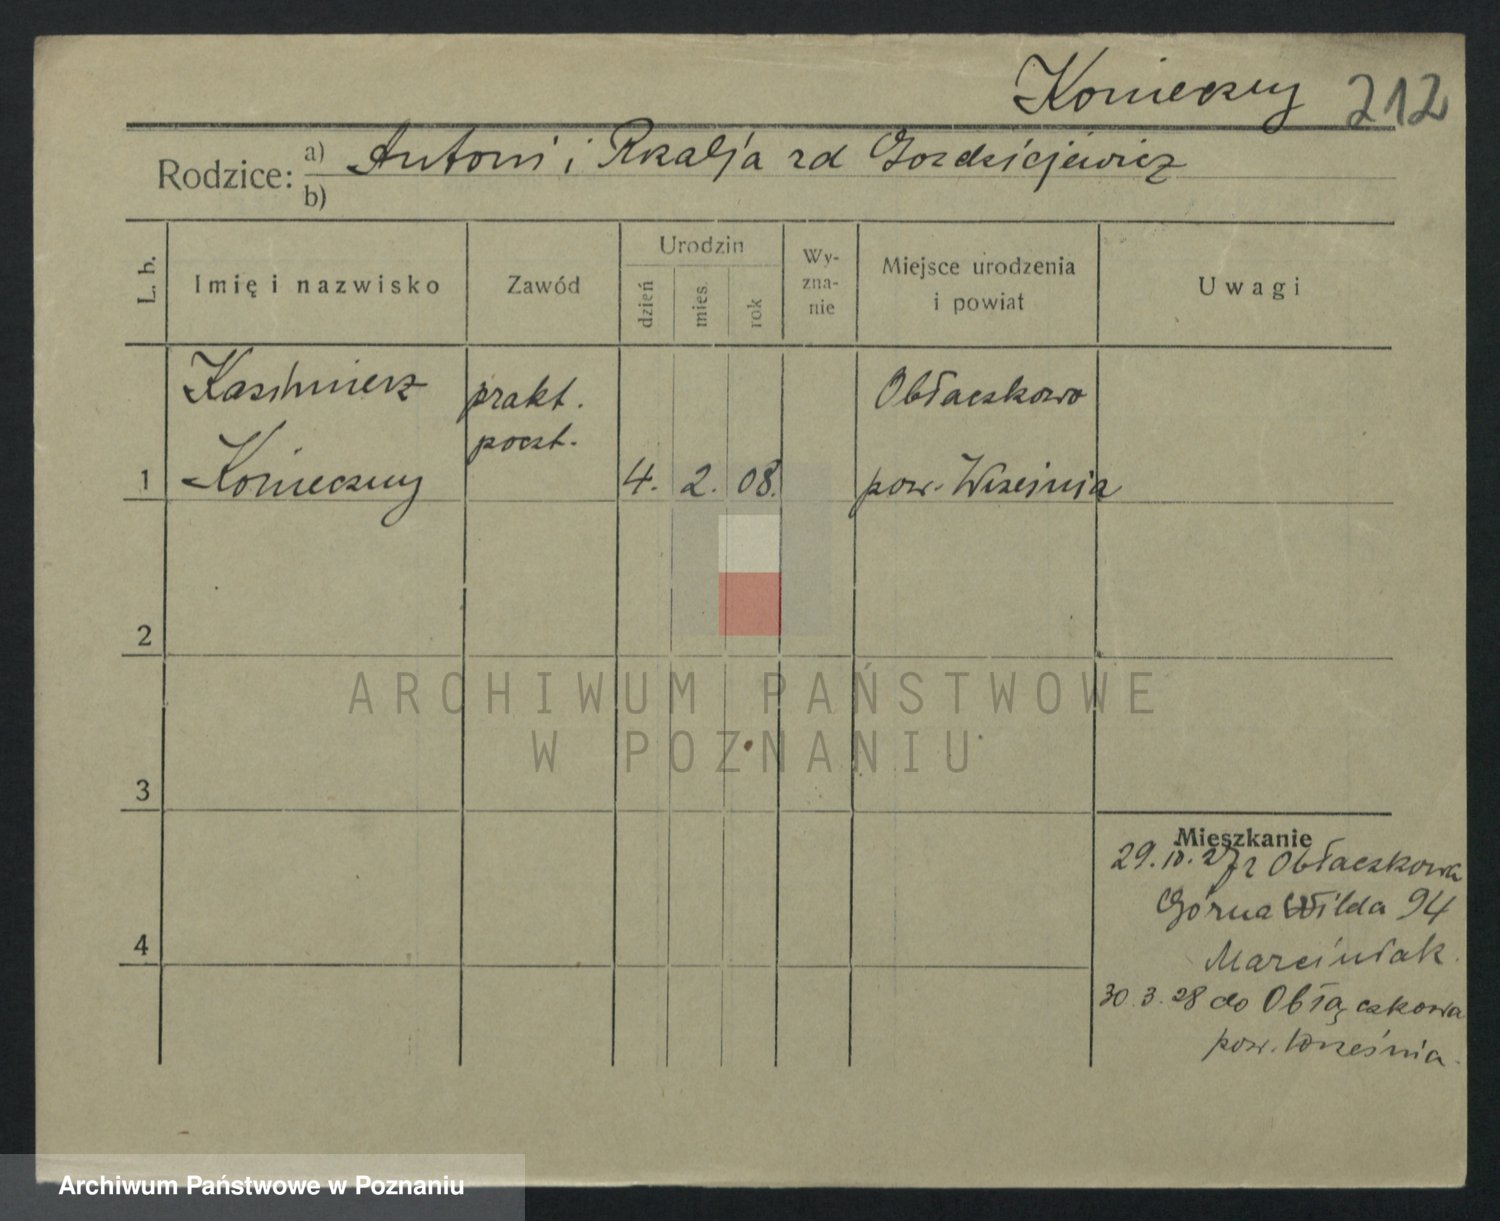 Konieczny 212
Rodzice: a) Antoni i Rozalja zd Gozdziejewicz
b)
L. b. Imię i nazwisko Zawód Urodzin dzień mies. rok Wy-zna-nie Miejsce urodzenia i powiat Uwagi
Kazimierz prakt. Obłaczkowo
poczt.
1 Konieczny 4. 2. 08. pow. Września
2
ARCHIWUM PAŃSTWOWE
W POZNANIU
3
Mieszkanie
29.10.27 z Obłaczkowa
Górna Wilda 94
4
Marciniak.
30.3.28 do Obłączkowa
pow. Września.
Archiwum Państwowe w Poznaniu